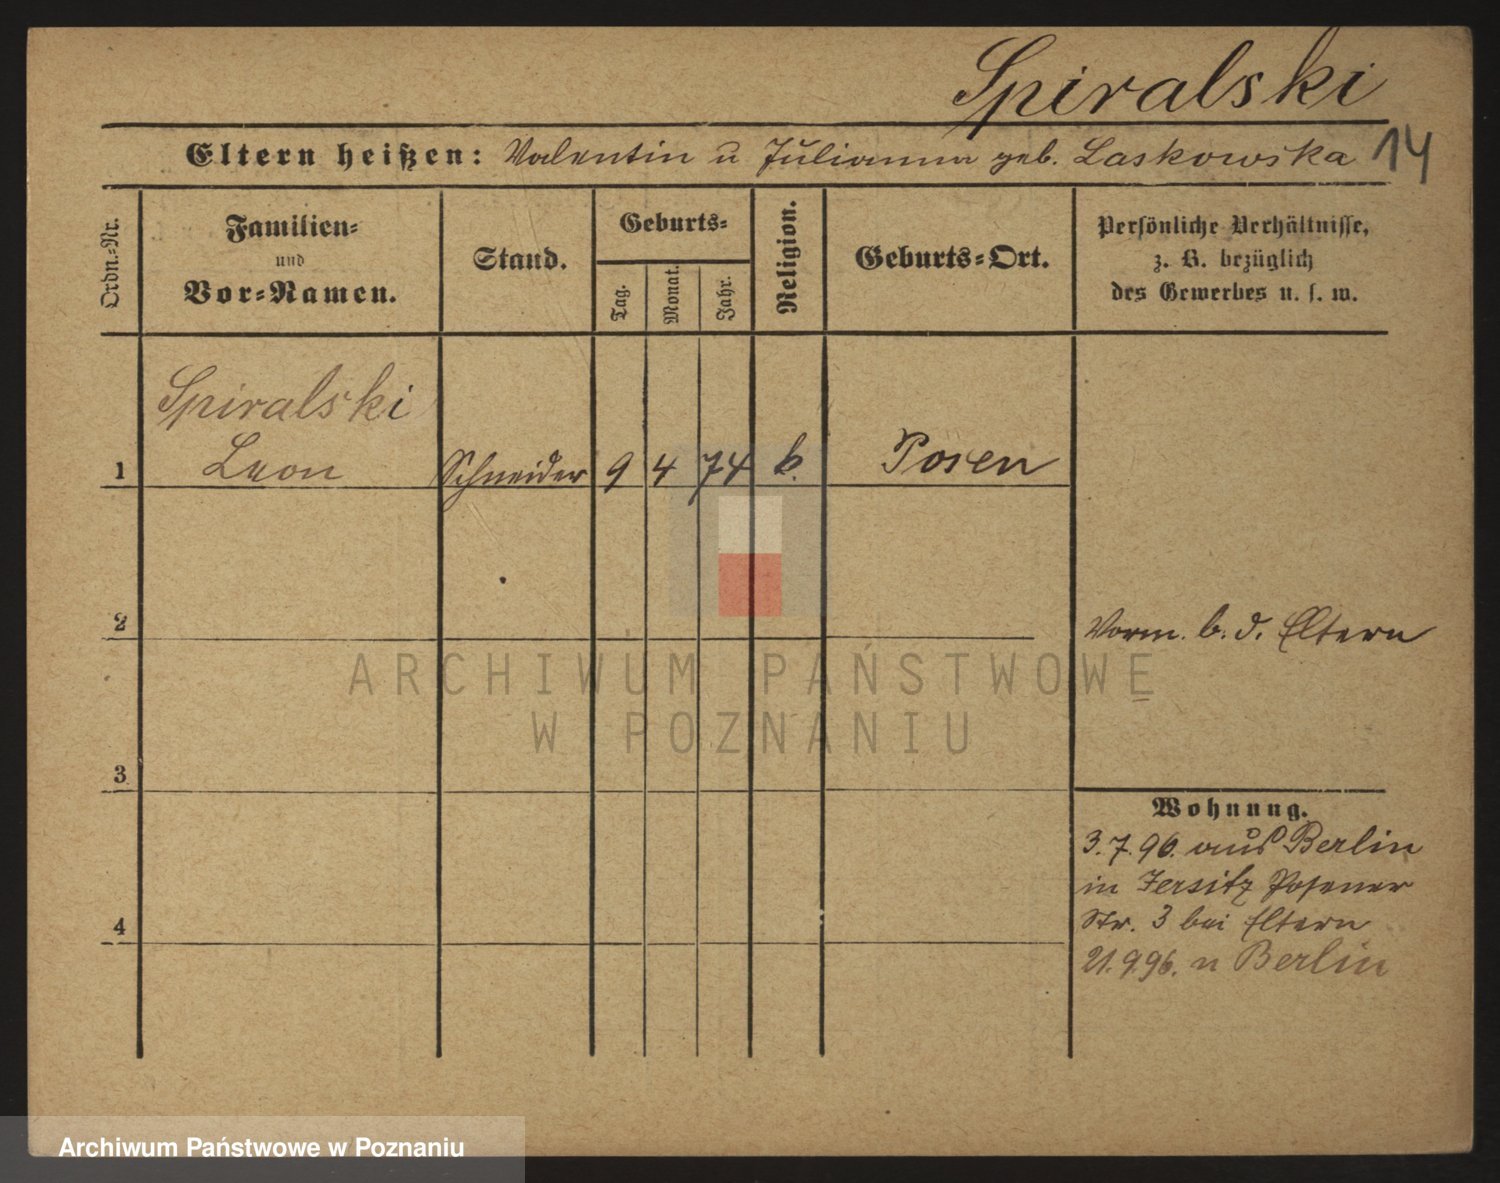 Spiralski
Eltern heißen: Valentin u Julianna geb. Laskowska 14
Ordn.-Nr.
Familien-
und
Vor-Namen.
Stand.
Geburts-
Tag.
Monat.
Jahr.
Religion.
Geburts-Ort.
Persönliche Verhältnisse,
z. B. bezüglich
des Gewerbes u. s. w.
Spiralski
1 Leon Schneider 9 4 74 k. Posen
2
Vorm. b. d. Eltern
ARCHIWUM PAŃSTWOWE
W POZNANIU
3
Wohnung.
3.7.96. aus Berlin
in Jersitz Posener
Str. 3 bei Eltern
4
21.9.96. n Berlin
Archiwum Państwowe w Poznaniu